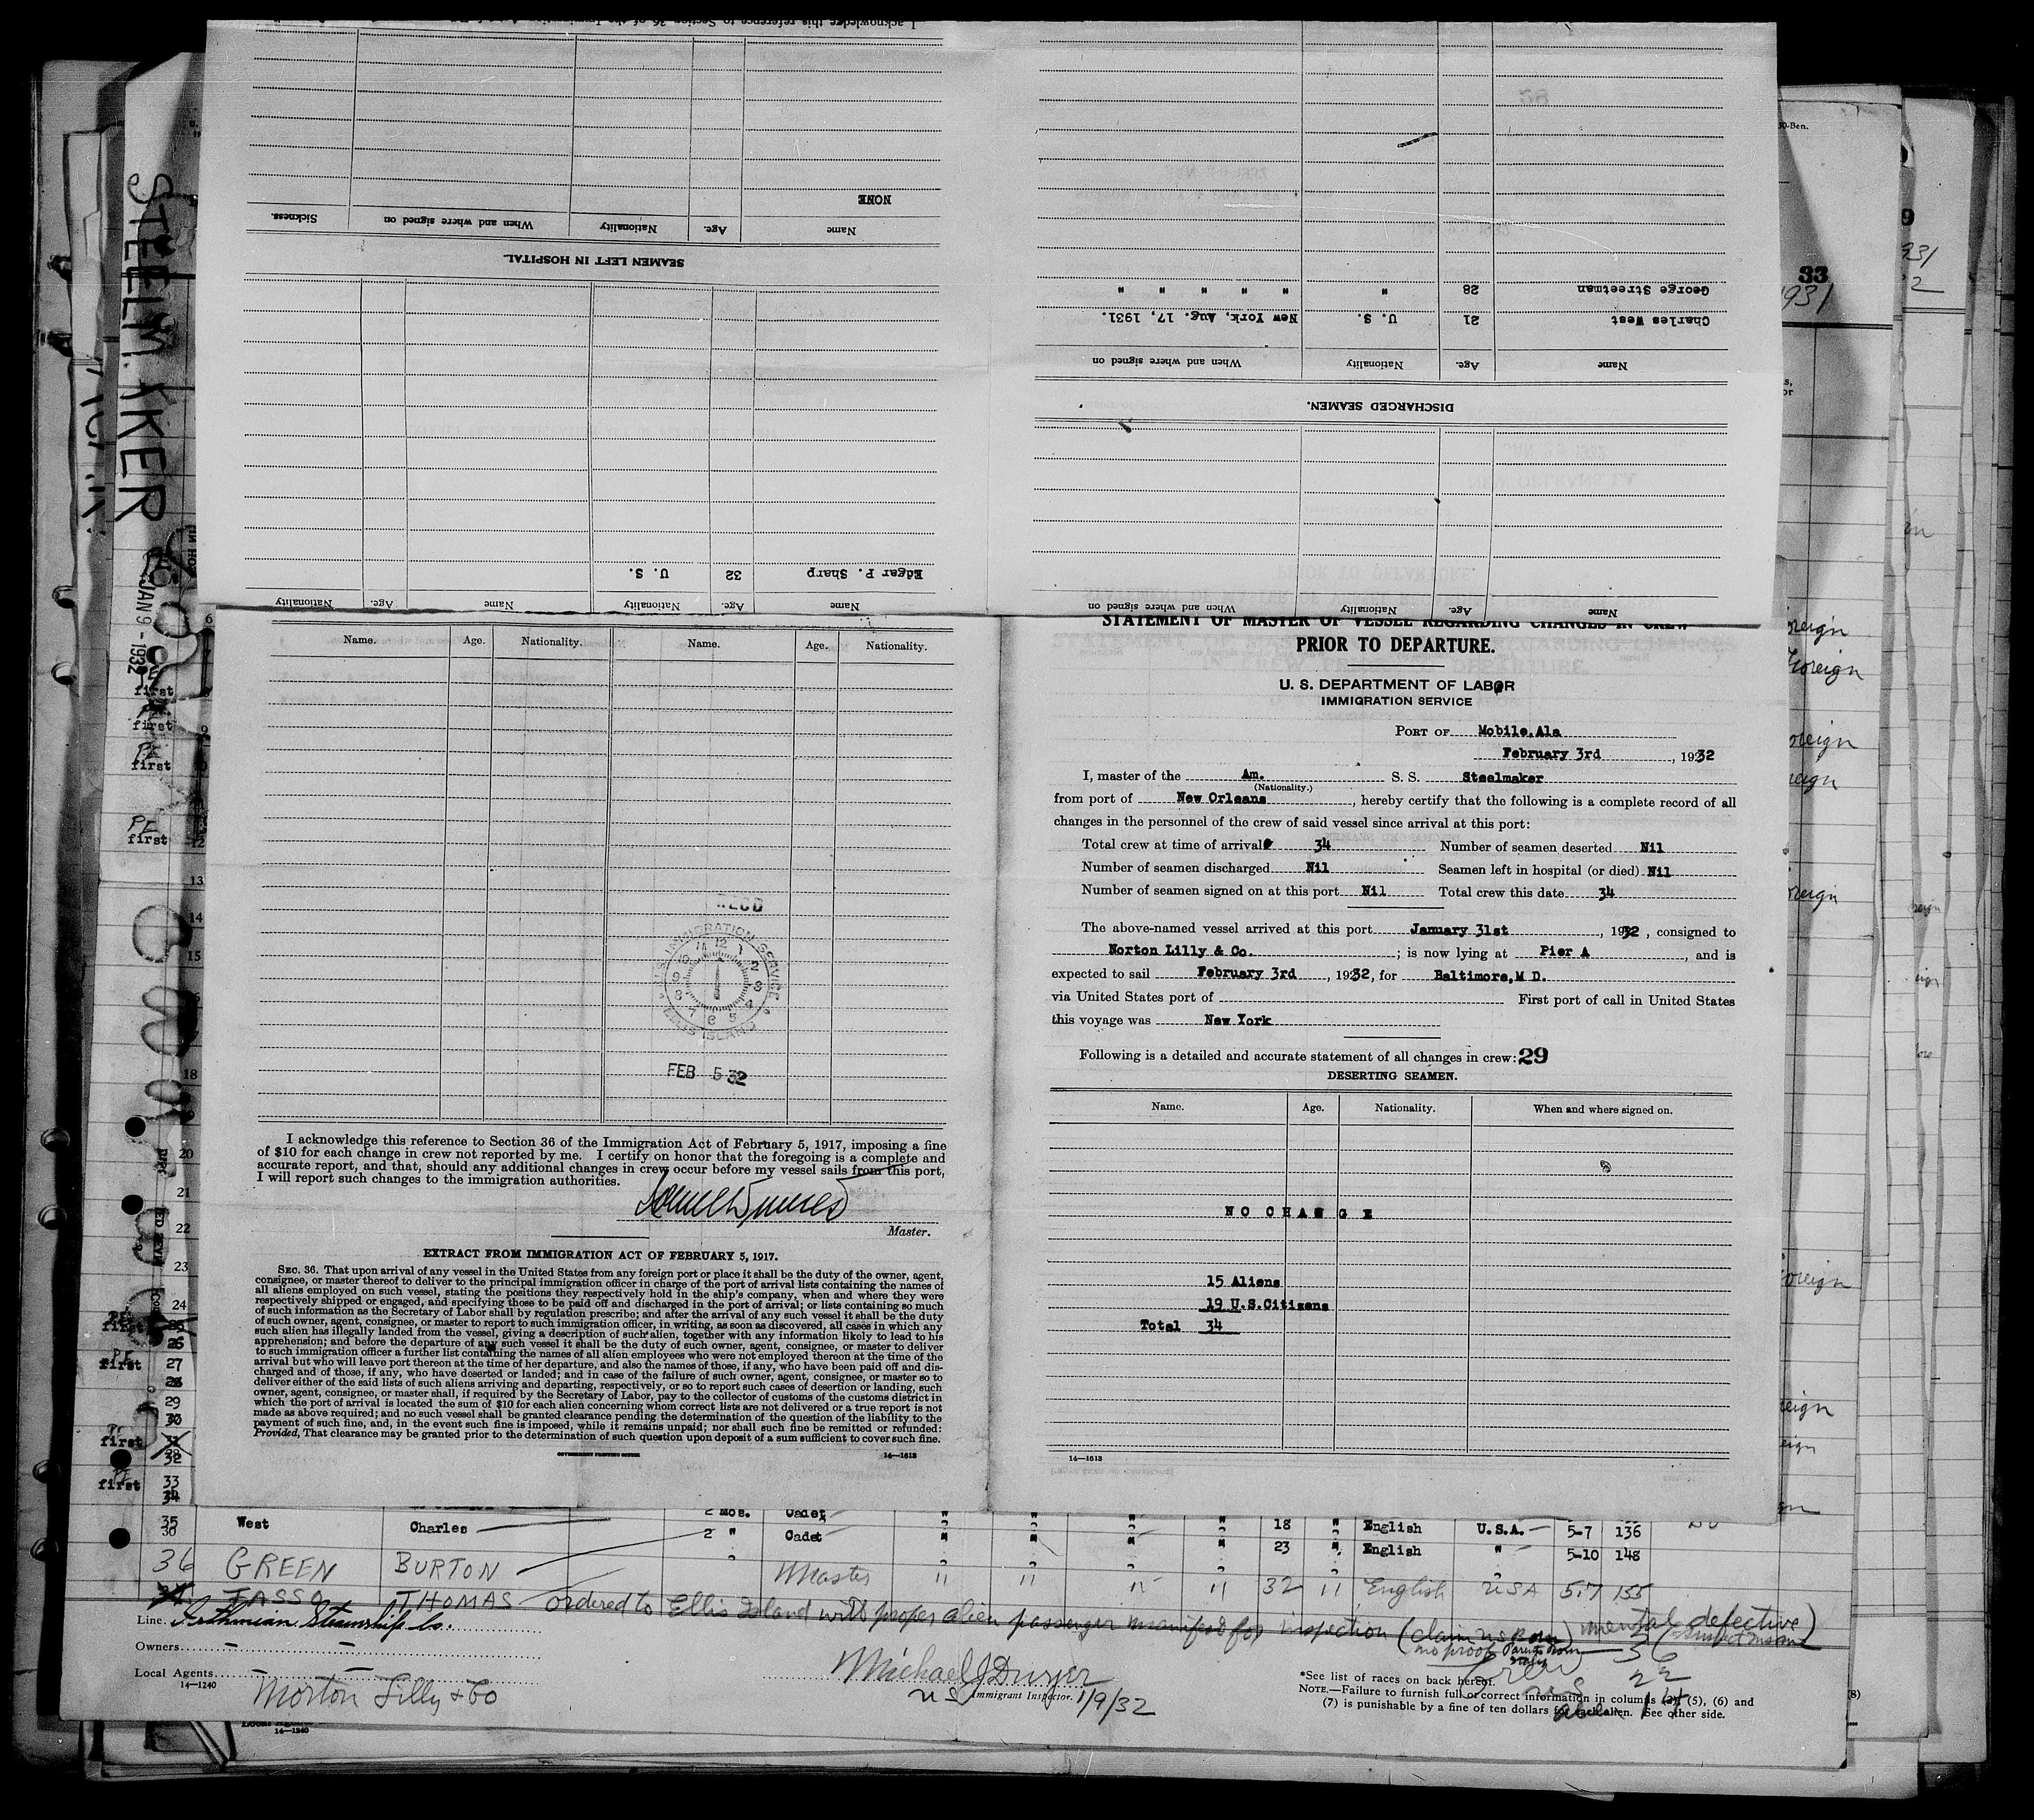 I acknowledge this reference to Section 36 of the Immigration
NONE
Name Age. Nationality When and where signed on Sickness.
SEAMEN LEFT IN HOSPITAL.
Edgar P. Sharp 32 U. S.
Name Age. Nationality Name Age. Nationality
George Streetman 28 " " " " " "
Charles West 21 U. S. New York, Aug. 17, 1931.
Name Age. Nationality When and where signed on
DISCHARGED SEAMEN.
Name Age. Nationality When and where signed on
33
1931
STEELMAKER
JAN 9 - 1932
Name. Age. Nationality. Name. Age. Nationality.
IMMIGRATION SERVICE
ELLIS ISLAND
FEB 5 32
I acknowledge this reference to Section 36 of the Immigration Act of February 5, 1917, imposing a fine
of $10 for each change in crew not reported by me. I certify on honor that the foregoing is a complete and
accurate report, and that, should any additional changes in crew occur before my vessel sails from this port,
I will report such changes to the immigration authorities.
Master.
EXTRACT FROM IMMIGRATION ACT OF FEBRUARY 5, 1917.
SEC. 36. That upon arrival of any vessel in the United States from any foreign port or place it shall be the duty of the owner, agent,
consignee, or master thereof to deliver to the principal immigration officer in charge of the port of arrival lists containing the names of
all aliens employed on such vessel, stating the positions they respectively hold in the ship's company, when and where they were
respectively shipped or engaged, and specifying those to be paid off and discharged in the port of arrival; or lists containing so much
of such information as the Secretary of Labor shall by regulation prescribe; and after the arrival of any such vessel it shall be the duty
of such owner, agent, consignee, or master to report to such immigration officer, in writing, as soon as discovered, all cases in which any
such alien has illegally landed from the vessel, giving a description of such alien, together with any information likely to lead to his
apprehension; and before the departure of any such vessel it shall be the duty of such owner, agent, consignee, or master to deliver
to such immigration officer a further list containing the names of all alien employees who were not employed thereon at the time of the
arrival but who will leave port thereon at the time of her departure, and also the names of those, if any, who have been paid off and dis-
charged and of those, if any, who have deserted or landed; and in case of the failure of such owner, agent, consignee, or master so to
deliver either of the said lists of such aliens arriving and departing, respectively, or so to report such cases of desertion or landing, such
owner, agent, consignee, or master shall, if required by the Secretary of Labor, pay to the collector of customs of the customs district in
which the port of arrival is located the sum of $10 for each alien concerning whom correct lists are not delivered or a true report is not
made as above required; and no such vessel shall be granted clearance pending the determination of the question of the liability to the
payment of such fine, and, in the event such fine is imposed, while it remains unpaid; nor shall such fine be remitted or refunded:
Provided, That clearance may be granted prior to the determination of such question upon deposit of a sum sufficient to cover such fine.
GOVERNMENT PRINTING OFFICE 14—1613
STATEMENT OF MASTER OF VESSEL REGARDING CHANGES IN CREW
PRIOR TO DEPARTURE.
U. S. DEPARTMENT OF LABOR
IMMIGRATION SERVICE
PORT OF Mobile.Ala
February 3rd, 1932
I, master of the Am. S. S. Steelmaker
(Nationality.)
from port of New Orleans, hereby certify that the following is a complete record of all
changes in the personnel of the crew of said vessel since arrival at this port:
Total crew at time of arrival 34 Number of seamen deserted Nil
Number of seamen discharged Nil Seamen left in hospital (or died) Nil
Number of seamen signed on at this port Nil Total crew this date 34
The above-named vessel arrived at this port January 31st, 1932, consigned to
Norton Lilly & Co. ; is now lying at Pier A, and is
expected to sail February 3rd, 1932, for Baltimore,M D.
via United States port of First port of call in United States
this voyage was New York
Following is a detailed and accurate statement of all changes in crew: 29
DESERTING SEAMEN.
Name. Age. Nationality. When and where signed on.
N O C H A N G E
15 Aliens
19 U.S.Citizens
Total 34
14—1613
35 West Charles 2 Mos. Cadet " " " " 18 " English U.S.A. 5-7 136
2 " Cadet " " " " 23 " English " 5-10 148
36 GREEN BURTON Master " " " " 32 " English USA 5.7 155
TASSO THOMAS ordered to Ellis Island with proper alien passenger manifest for inspection (claim US Born) mental defective)
Line Isthmian Steamship Co.
Owners
Local Agents Norton Lilly & Co
14—1240
Michael J Dwyer
US Immigrant Inspector. 1/9/32
*See list of races on back hereof.
NOTE.—Failure to furnish full or correct information in columns (3), (5), (6) and
(7) is punishable by a fine of ten dollars for each alien. See other side.
Crew 36
US 22
alien 14